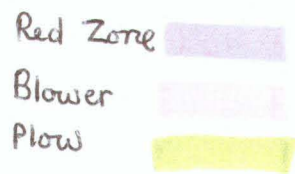 Red Zone
Blower
Plow